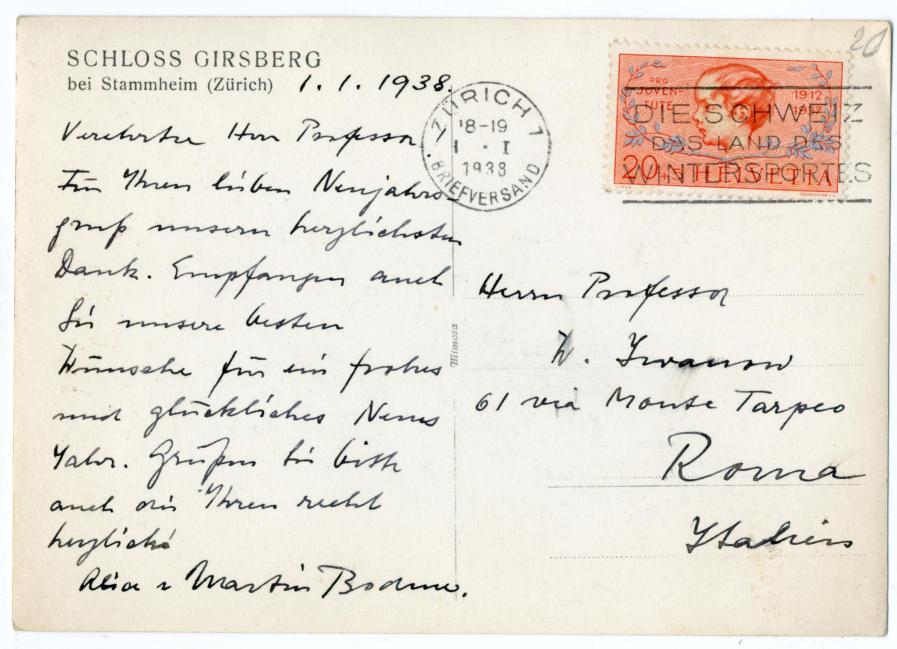 SCHLOSS GIRSBERG
bei Stammheim (Zürich) 1.1.1938.
Verehrter Herr Professor,
Für Ihren lieben Neujahrs-
gruß unsern herzlichsten
Dank. Empfangen auch
Sie unsere besten
Wünsche für ein frohes
und glückliches Neues
Jahr. Grüßen Sie bitte
auch die Ihren recht
herzlich
Alice u Martin Bodmer.
Mimosa
ZÜRICH 1
18-19
1 . I
1938
BRIEFVERSAND
DIE SCHWEIZ
DAS LAND DES
WINTERSPORTES
PRO
JUVEN-
TUTE
1912
1937
20+ HELVETIA
Herrn Professor
W. Iwanow
61 via Monte Tarpeo
Roma
Italien